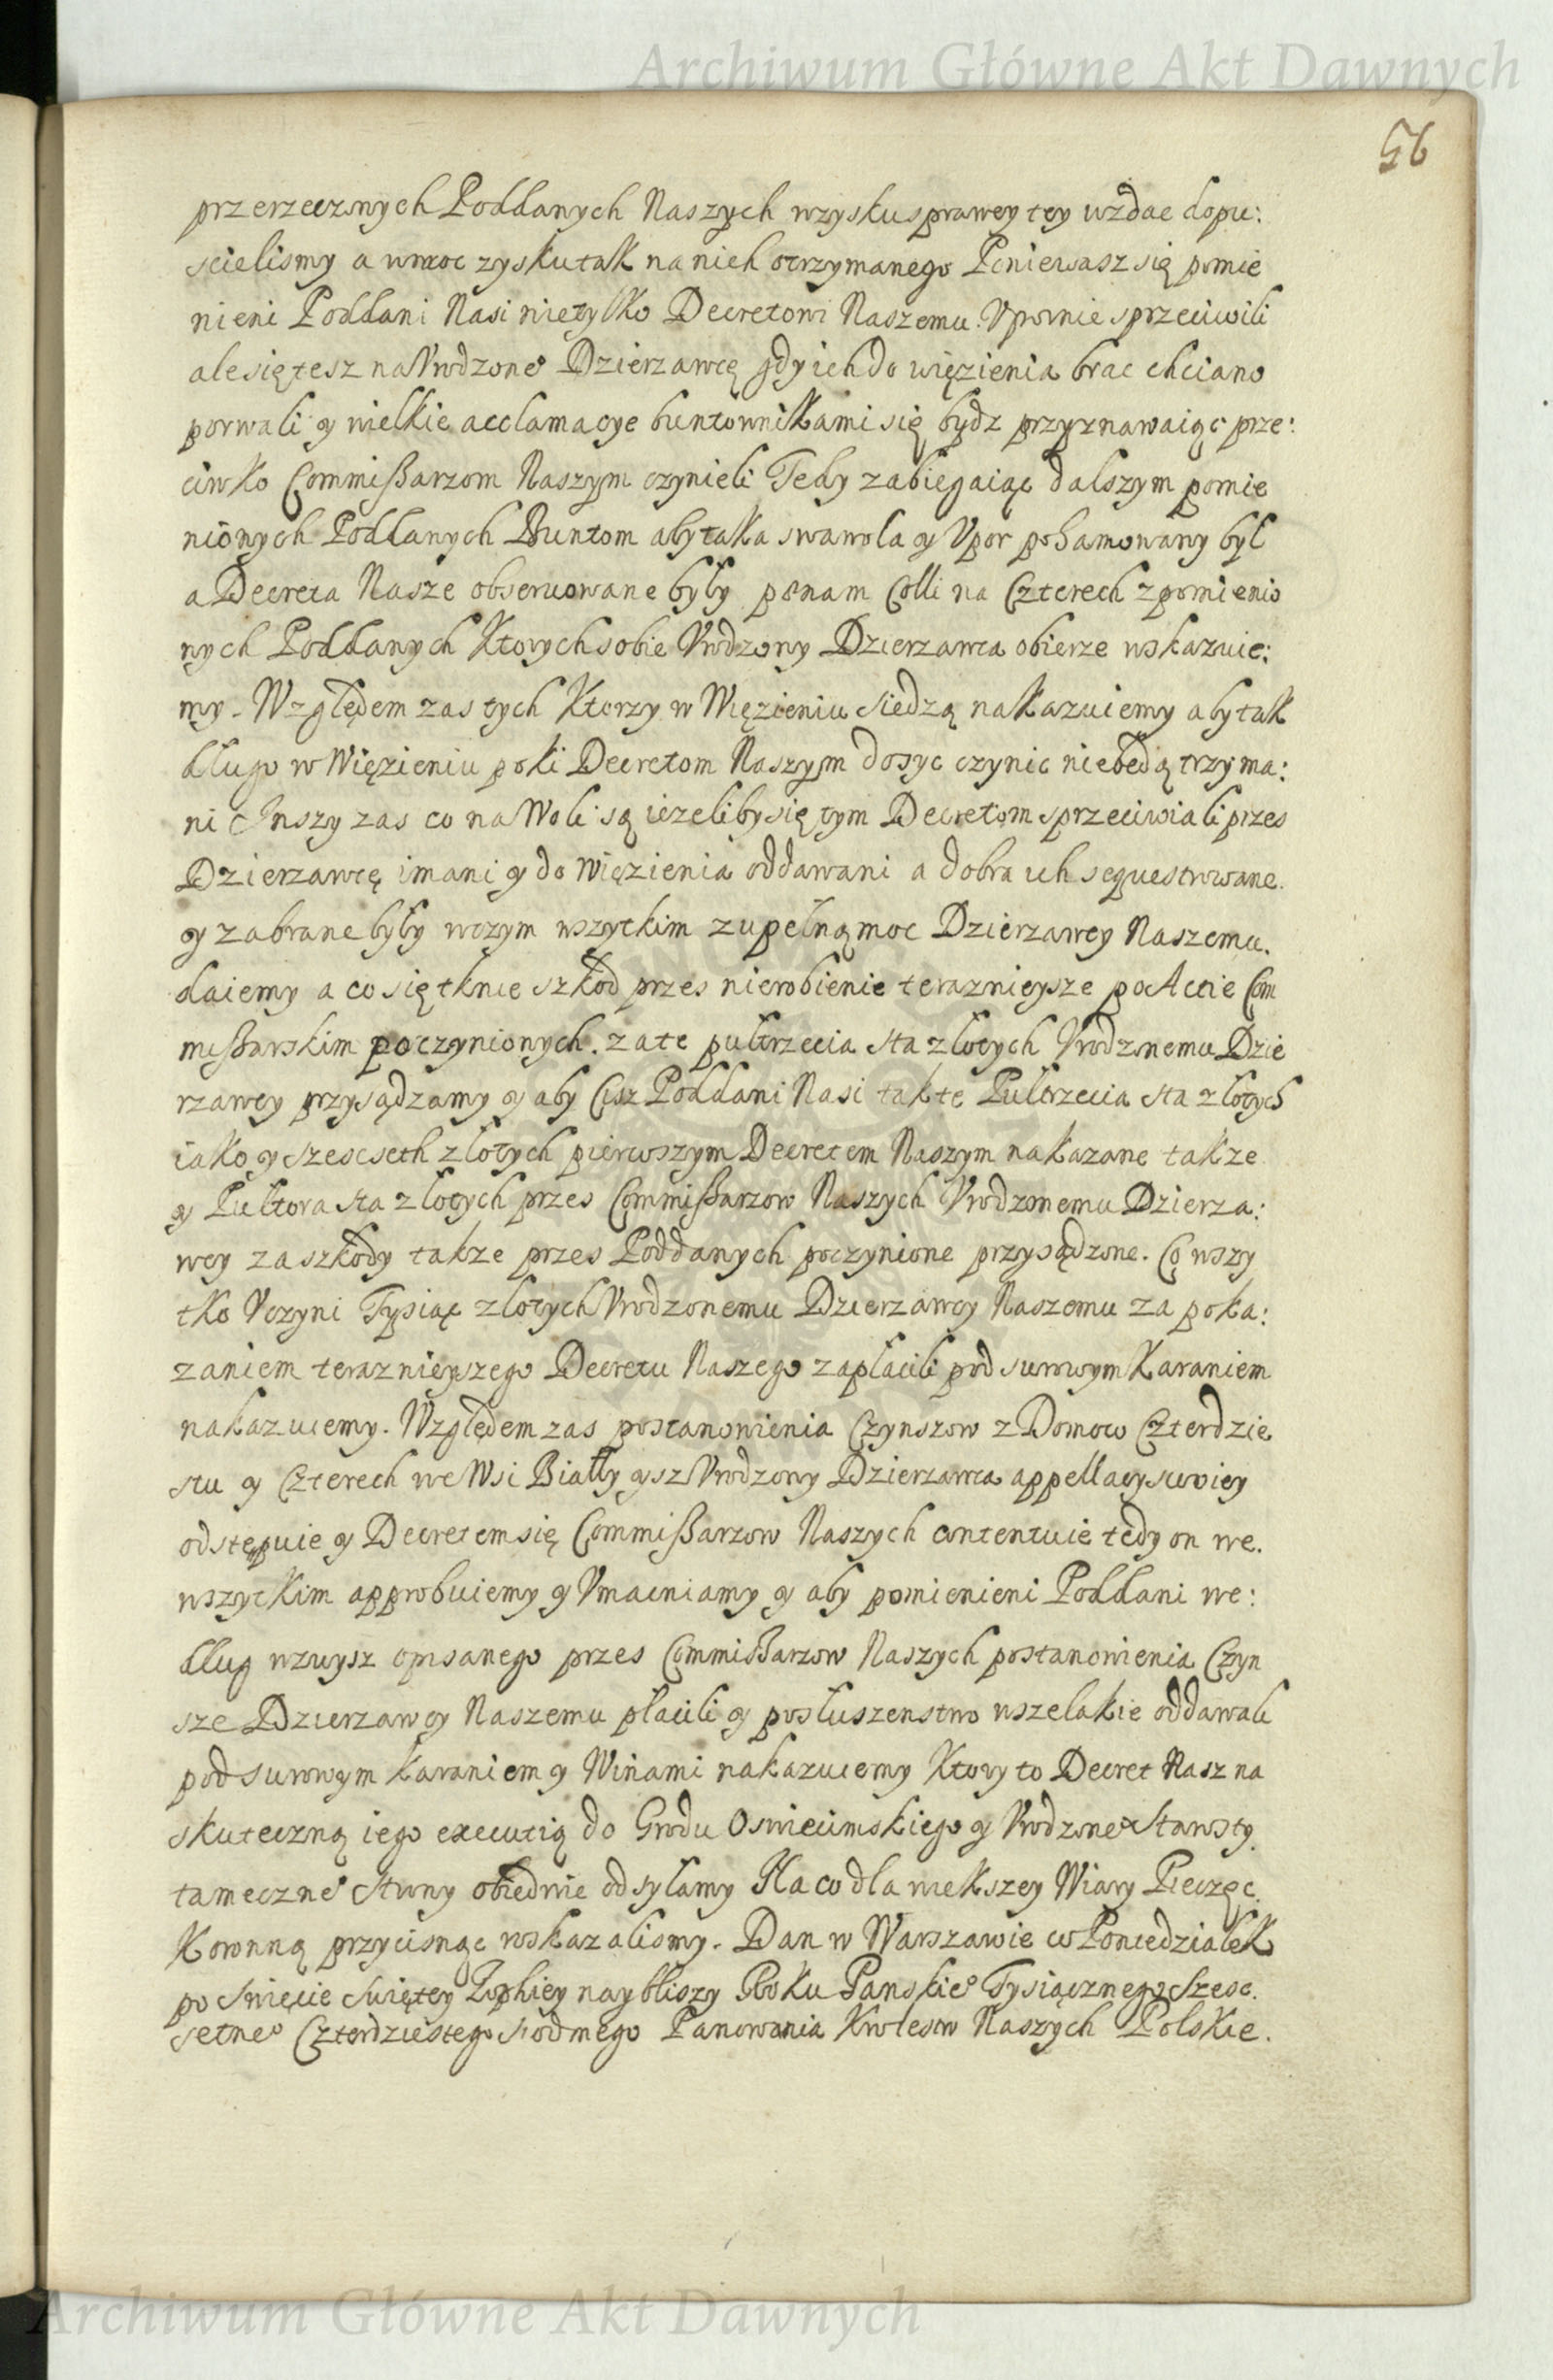 Archiwum Główne Akt Dawnych
56
przerzeczonych Poddanych Naszych wzysku sprawey tey wzdac dopu:
scielismy a wmoc zyskutak na nich otrzymanego Poniewasz się pomie
nieni Poddani Nasi nietylko Decretowi Naszemu Vpornie sprzeciwili
ale się tesz na Vrodzone° Dzierzawcę gdy ich do więzienia brac chciano
porwali y wielkie acclamacye buntownikami się bydz przyznawaiąc prze:
ciwko Commißarzom Naszym czynieli Tedy zabiegaiąc dalszym pomie
nionych Poddanych Buntom aby taka swawola y Vpor pohamowany był
a Decreta Nasze obseruowane były pænam Colli na Czterech zpomienio
nych Poddanych Ktorych sobie Vrodzony Dzierzawca obierze wskazuie:
my. Względem zas tych Ktorzy w Więzieniu siedzą nakazuiemy aby tak
długo w Więzieniu poki Decretom Naszym dosyc czynic niebędą trzyma:
ni Inszy zas co na Woli są iezeliby się tym Decretom sprzeciwiali przes
Dzierzawcę imani y do Więzienia oddawani a dobra ich sequestrowane.
y zabrane były wczym wszytkim zupełną moc Dzierzawcy Naszemu.
daiemy a co się tknie szkod przes nierobienie teraznieysze po Actie Com
mißarskim poczynionych. za te pułtrzecia sta złotych Vrodzonemu Dzie
rzawcy przysądzamy y aby Cisz Poddani Nasi tak te Pułtrzecia sta złotych
iako y szescseth złotych pierwszym Decretem Naszym nakazane takze
y Pułtora sta złotych przes Commißarzow Naszych Vrodzonemu Dzierza:
wcy za szkody takze przes Poddanych poczynione przysądzone. Co wszy
tko Vczyni Tysiąc złotych Vrodzonemu Dzierzawcy Naszemu za poka:
zaniem teraznieyszego Decretu Naszego zapłacili pod surowym Karaniem
nakazuiemy. Względem zas postanowienia Czynszow z Domow Czterdzie
stu y Czterech we Wsi Białły ysz Vrodzony Dzierzawca appellacy swoiey
odstępuie y Decretem się Commißarzow Naszych contentuie tedy on we.
wszytkim approbuiemy y Vmacniamy y aby pomienieni Poddani we:
dług wzwysz opisanego przes Commißarzow Naszych postanowienia Czyn
sze Dzierzawcy Naszemu płacili y posłuszenstwo wszelakie oddawali
pod surowym karaniem y Winami nakazuiemy Ktory to Decret Nasz na
skuteczną iego executią do Grodu Oswiecimskiego y Vrodzone° Starosty
tameczne° Strony obiedwie odsyłamy Na co dla wiekszey Wiary Pieczęc.
Koronną przycisnąc wskazalismy. Dan w Warszawie w Poniedziałek
po Swięcie Swiętey Zophiey naybliszy Roku Panskie° Tysiącznego Szesc.
setne° Czterdziestego siodmego Panowania Krolestw Naszych Polskie.
Archiwum Główne Akt Dawnych